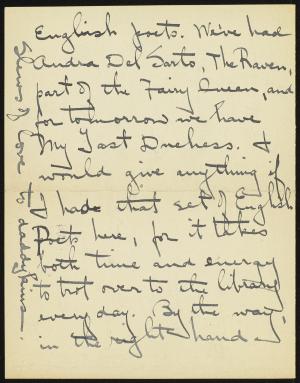 English poets. We've had
Andra Del Sarto, The Raven,
part of the Fairy Queen, and
for tomorrow we have
My Last Duchess. I
would give anything if
I had that set of English
Poets here, for it takes
both time and energy
to trot over to the library
every day. By the way,
in the right hand
Slews of love to daddykins.